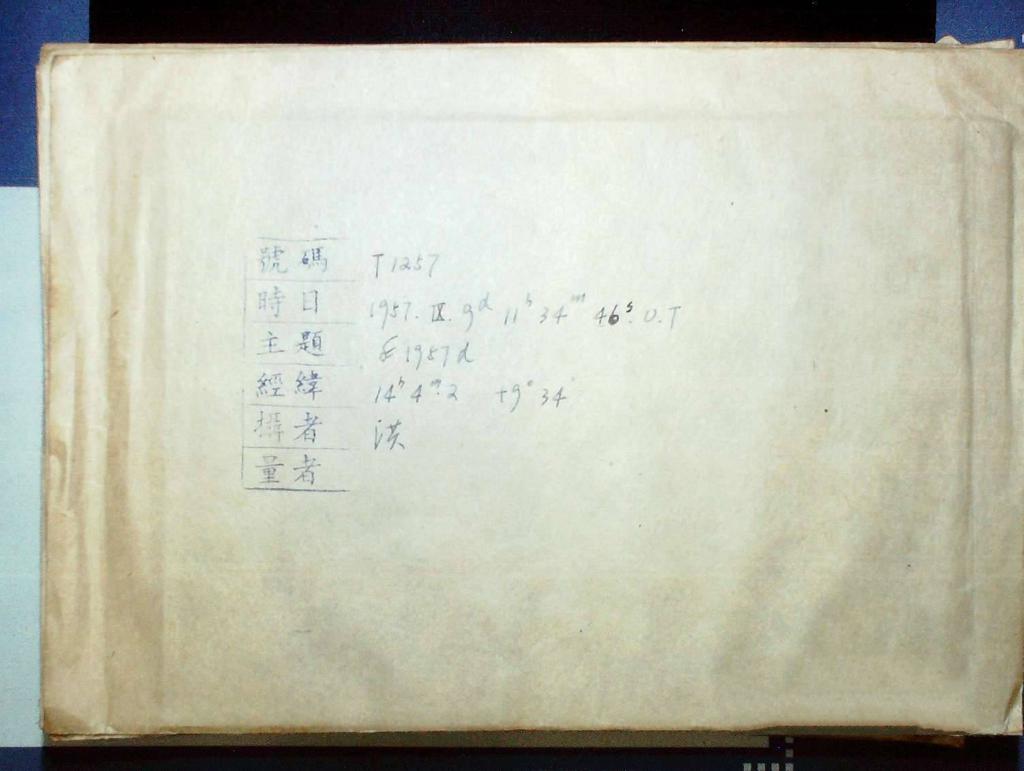 號碼 T1257
時日 1957. IX. 9ᵈ 11ʰ 34ᵐ 46ˢ. U.T
主題 1957d
經緯 14ʰ 4ᵐ.2 +9° 34'
攝者 洪
量者